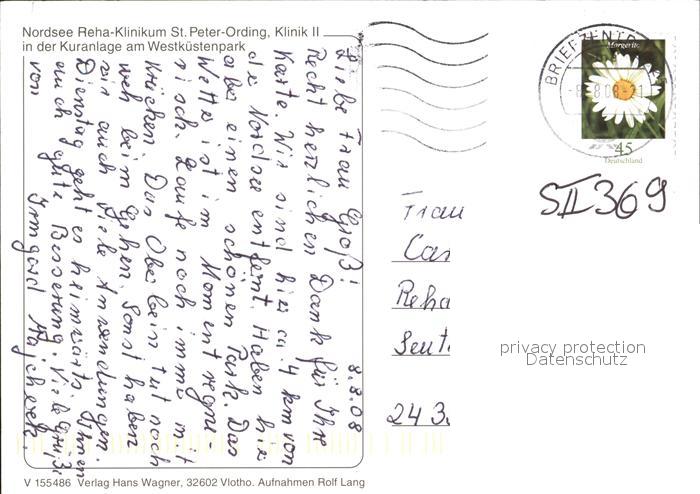 Nordsee Reha-Klinikum St. Peter-Ording, Klinik II
in der Kuranlage am Westküstenpark
8.8.08
Liebe Frau Groß!
Recht herzlichen Dank für Ihre
Karte. Wir sind hier ca. 4 km von
der Nordsee entfernt. Haben hier
aber einen schönen Park. Das
Wetter ist im Moment regne-
risch. Laufe noch immer mit
Krücken. Das Oberbein tut noch
weh beim Gehen. Sonst haben
wir auch viele Anwendungen.
Dienstag geht es heimwärts. Ihnen
auch gute Besserung. Viele Grüße
von Irmgard
BRIEFZENTR
-8.-8.08-21
Margerite
45
Deutschland
SII 369
Frau
Car
Reha
Seut
24 3
privacy protection
Datenschutz
V 155486 Verlag Hans Wagner, 32602 Vlotho. Aufnahmen Rolf Lang